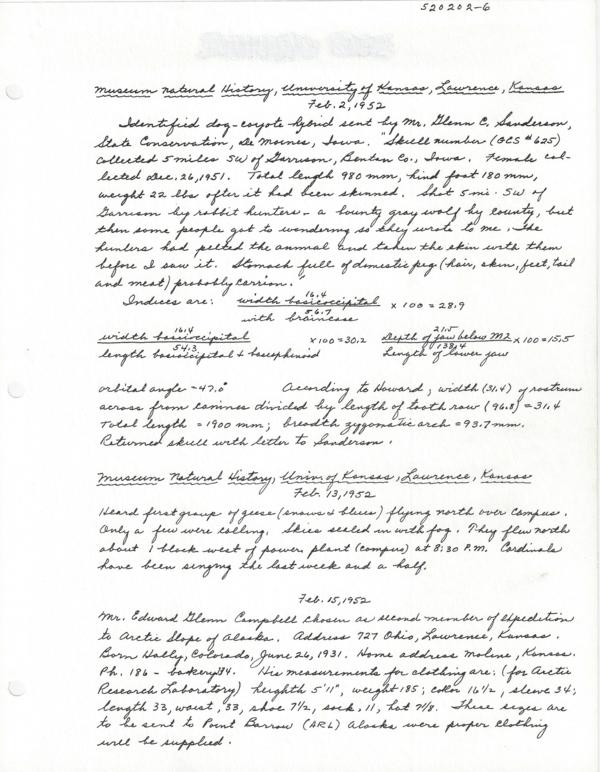 520202-6
Museum Natural History, University of Kansas, Lawrence, Kansas
Feb. 2, 1952
Identified dog-coyote hybrid sent by Mr. Glenn C. Sanderson,
State Conservation, De Moines, Iowa. "Skull number (GCS #625)
collected 5 miles SW of Garrison, Benton Co., Iowa. Female col-
lected Dec. 26, 1951. Total length 980 mm, hind foot 180 mm,
weight 22 lbs after it had been skinned. Shot 5 mi. SW of
Garrison by rabbit hunters - a bounty gray wolf by county, but
then some people got to wondering so they wrote to me. The
hunters had pelted the animal and taken the skin with them
before I saw it. Stomach full of domestic pig (hair, skin, feet, tail
and meat) probably carrion."
Indices are: width basioccipital 16.4
with braincase 56.7 x 100 = 28.9
width basioccipital 16.4 x 100 = 30.2 Depth of jaw below M2 21.5 x 100 = 15.5
length basioccipital + basisphenoid 54.3 Length of lower jaw 138.4
orbital angle - 47.0° According to Howard, width (31.4) of rostrum
across from canines divided by length of tooth row (96.8) = 31.4
Total length = 1900 mm; breadth zygomatic arch = 93.7 mm.
Returned skull with letter to Sanderson.
Museum Natural History, Univ. of Kansas, Lawrence, Kansas
Feb. 13, 1952
Heard first group of geese (snows & blues) flying north over campus.
Only a few were calling. Skies sealed in with fog. They flew north
about 1 block west of power plant (campus) at 8:30 P.M. Cardinals
have been singing the last week and a half.
Feb. 15, 1952
Mr. Edward Glenn Campbell chosen as second member of expedition
to Arctic Slope of Alaska. Address 727 Ohio, Lawrence, Kansas.
Born Holly, Colorado, June 26, 1931. Home address Moline, Kansas.
Ph. 186 - bakery 84. His measurements for clothing are: (for Arctic
Research Laboratory) heighth 5'11", weight 185; color 16 1/2, sleeve 34;
length 33, waist, 33, shoe 7 1/2, sock, 11, hat 7 1/8. These sizes are
to be sent to Point Barrow (ARL) Alaska were proper clothing
will be supplied.